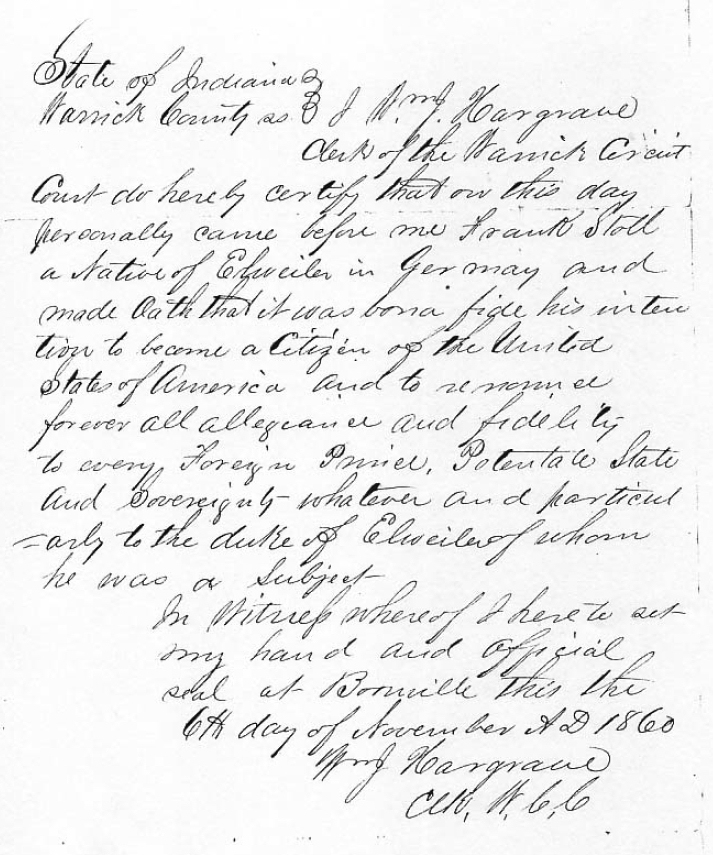 State of Indiana }
Warrick County ss } I Wm J. Hargrave
Clerk of the Warrick Circuit
Court do hereby certify that on this day
personally came before me Frank Stoll
a Native of Elweiler in Germay and
made Oath that it was bona fide his inten
tion to become a Citizen of the United
States of America and to renounce
forever all allegiance and fidelity
to every Foreign Prince, Potentate State
and Sovereignty whatever and particul
=arly to the duke of Elweiler of whom
he was a Subject
In Witness whereof I hereto set
my hand and official
seal at Boonville this the
6th day of November A D 1860
Wm J Hargrave
Clk, W, C, C